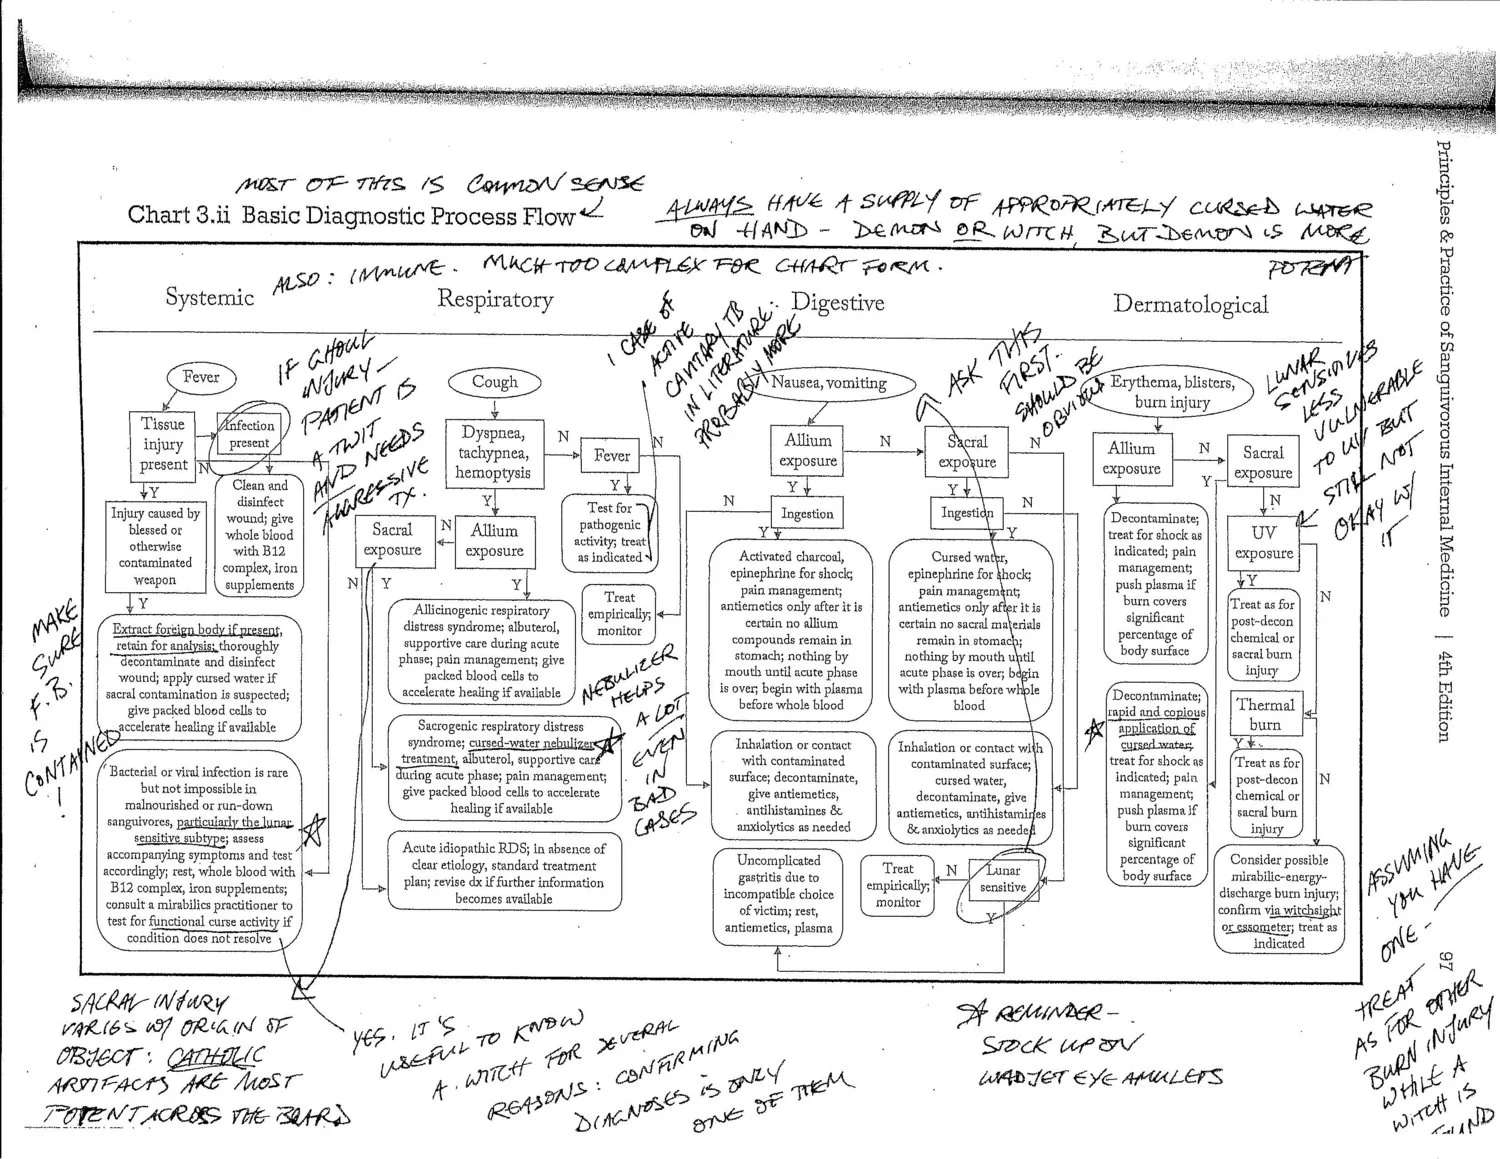 MOST OF THIS IS COMMON SENSE
Chart 3.ii Basic Diagnostic Process Flow
ALWAYS HAVE A SUPPLY OF APPROPRIATELY CURSED WATER
ON HAND – DEMON OR WITCH, BUT DEMON IS MORE
POTENT
ALSO: IMMUNE. MUCH TOO COMPLEX FOR CHART FORM.
Systemic
Respiratory
Digestive
Dermatological
Fever
Tissue
injury
present
Infection
present
N
Y
Clean and
disinfect
wound; give
whole blood
with B12
complex, iron
supplements
Injury caused by
blessed or
otherwise
contaminated
weapon
Y
Extract foreign body if present,
retain for analysis; thoroughly
decontaminate and disinfect
wound; apply cursed water if
sacral contamination is suspected;
give packed blood cells to
accelerate healing if available
Bacterial or viral infection is rare
but not impossible in
malnourished or run-down
sanguivores, particularly the lunar
sensitive subtype; assess
accompanying symptoms and test
accordingly; rest, whole blood with
B12 complex, iron supplements;
consult a mirabilics practitioner to
test for functional curse activity if
condition does not resolve
IF GHOUL
INJURY –
PATIENT IS
A TWIT
AND NEEDS
AGGRESSIVE
TX.
MAKE
SURE
F.B.
IS
CONTAINED
!
Cough
Dyspnea,
tachypnea,
hemoptysis
N
Fever
N
Y
Y
Test for
pathogenic
activity; treat
as indicated
Treat
empirically;
monitor
Sacral
exposure
N
Allium
exposure
N
Y
Y
Allicinogenic respiratory
distress syndrome; albuterol,
supportive care during acute
phase; pain management; give
packed blood cells to
accelerate healing if available
Sacrogenic respiratory distress
syndrome; cursed-water nebulizer
treatment, albuterol, supportive care
during acute phase; pain management;
give packed blood cells to accelerate
healing if available
Acute idiopathic RDS; in absence of
clear etiology, standard treatment
plan; revise dx if further information
becomes available
1 CASE OF
ACTIVE
CAVITARY TB
IN LITERATURE.
PROBABLY MORE
NEBULIZER
HELPS
A LOT
EVEN
IN
BAD
CASES
Nausea, vomiting
Allium
exposure
N
Sacral
exposure
N
Y
Y
N
Ingestion
Ingestion
N
Y
Y
Activated charcoal,
epinephrine for shock;
pain management;
antiemetics only after it is
certain no allium
compounds remain in
stomach; nothing by
mouth until acute phase
is over; begin with plasma
before whole blood
Cursed water,
epinephrine for shock;
pain management;
antiemetics only after it is
certain no sacral materials
remain in stomach;
nothing by mouth until
acute phase is over; begin
with plasma before whole
blood
Inhalation or contact
with contaminated
surface; decontaminate,
give antiemetics,
antihistamines &
anxiolytics as needed
Inhalation or contact with
contaminated surface;
cursed water,
decontaminate, give
antiemetics, antihistamines
& anxiolytics as needed
Uncomplicated
gastritis due to
incompatible choice
of victim; rest,
antiemetics, plasma
Treat
empirically;
monitor
N
Lunar
sensitive
Y
ASK THIS
FIRST.
SHOULD BE
OBVIOUS
Erythema, blisters,
burn injury
Allium
exposure
Sacral
exposure
Y
N
Decontaminate;
treat for shock as
indicated; pain
management;
push plasma if
burn covers
significant
percentage of
body surface
UV
exposure
Y
N
Treat as for
post-decon
chemical or
sacral burn
injury
Decontaminate;
rapid and copious
application of
cursed water;
treat for shock as
indicated; pain
management;
push plasma if
burn covers
significant
percentage of
body surface
Thermal
burn
Y
N
Treat as for
post-decon
chemical or
sacral burn
injury
Consider possible
mirabilic-energy-
discharge burn injury;
confirm via witchsight
or essometer; treat as
indicated
LUNAR
SENSITIVES
LESS
VULNERABLE
TO UV BUT
STILL NOT
OKAY W/
IT
Principles & Practice of Sanguivorous Internal Medicine | 4th Edition
97
ASSUMING
YOU HAVE
ONE –
TREAT
AS FOR OTHER
BURN INJURY
WHILE A
WITCH IS
FOUND
SACRAL INJURY
VARIES W/ ORIGIN OF
OBJECT: CATHOLIC
ARTIFACTS ARE MOST
POTENT ACROSS THE BOARD
YES. IT'S
USEFUL TO KNOW
A WITCH FOR SEVERAL
REASONS: CONFIRMING
DIAGNOSES IS ONLY
ONE OF THEM
REMINDER –
STOCK UP ON
WADJET EYE AMULETS